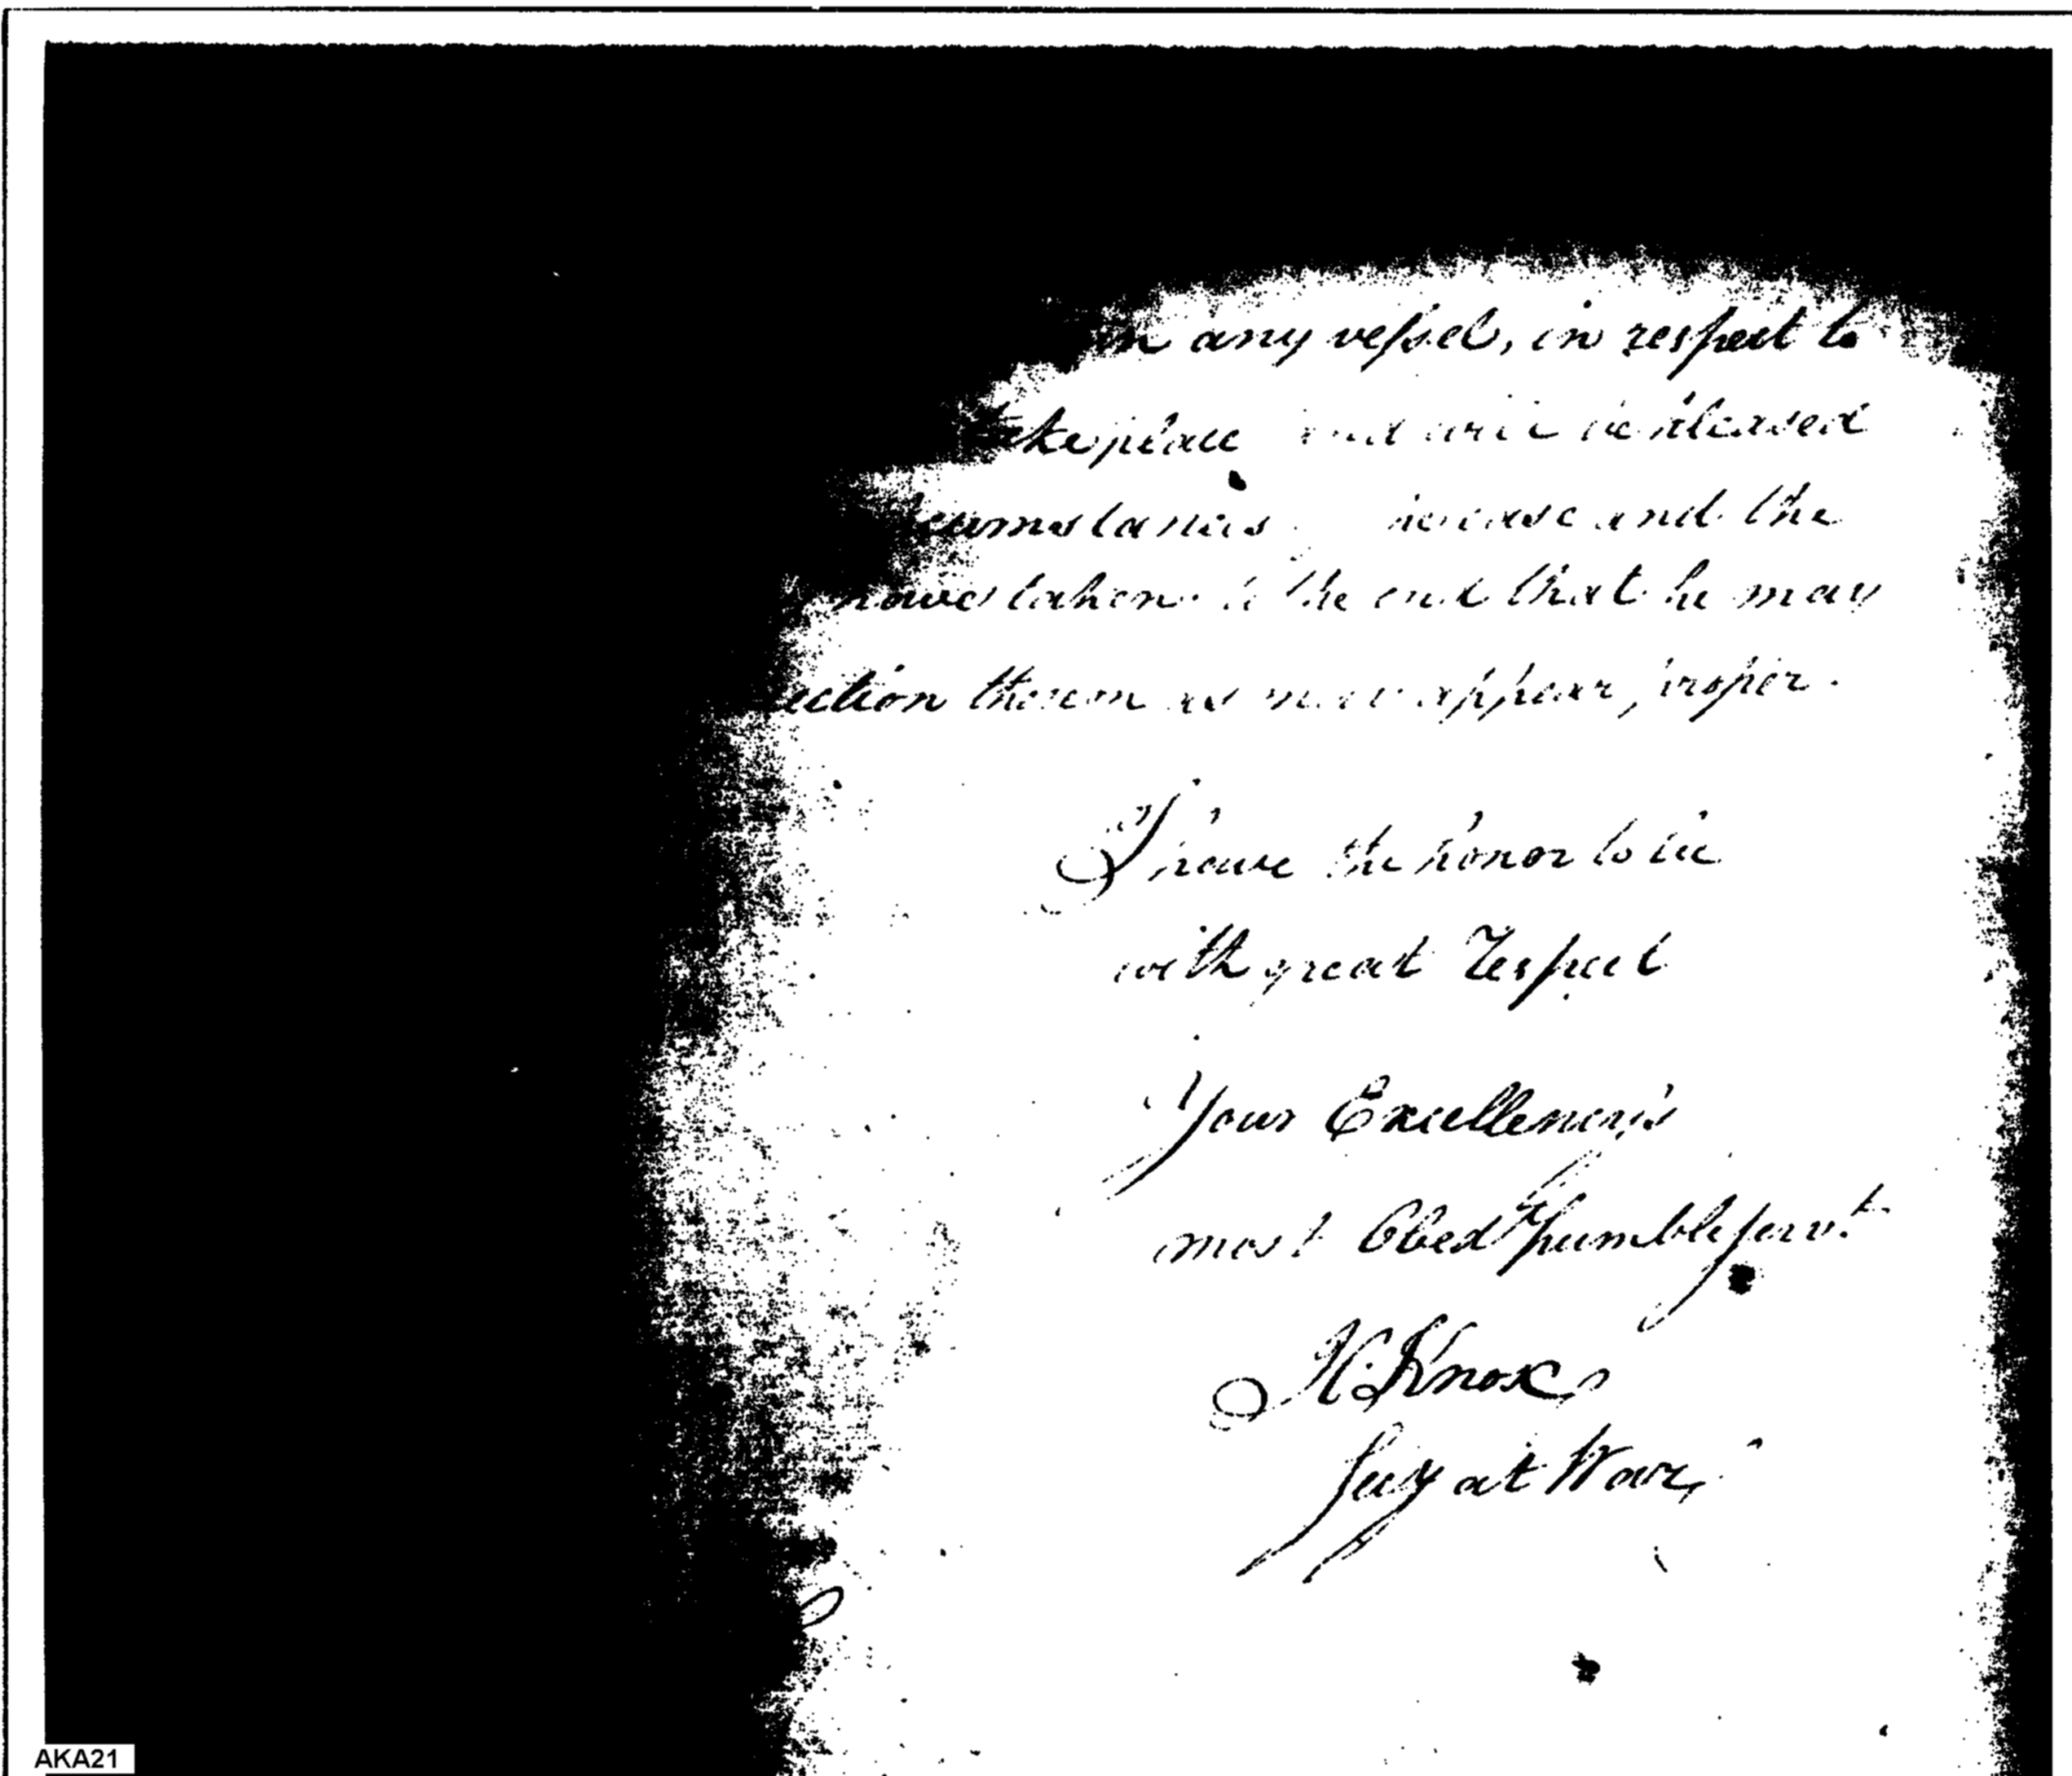 any vessel, in respect to
place and will be pleased
the case and the
taken to the end that he may
thereon as may appear proper.
I have the honor to be
with great respect
Your Excellency's
most Obedt humble servt
H. Knox
Secy at War
AKA21